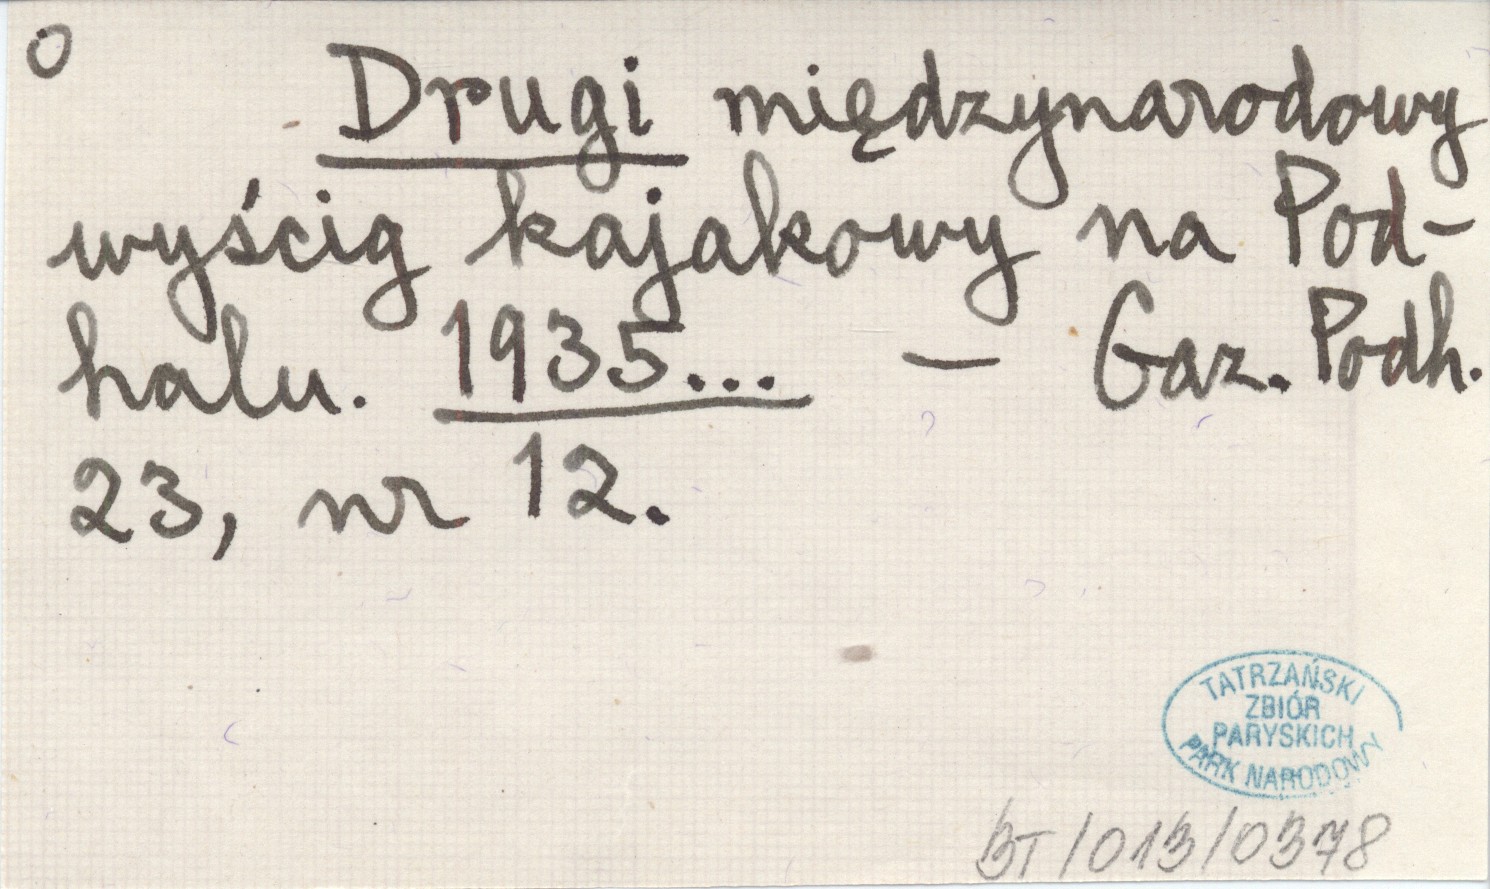 O
Drugi międzynarodowy
wyścig kajakowy na Pod-
halu. 1935... — Gaz. Podh.
23, nr 12.
TATRZAŃSKI
ZBIÓR
PARYSKICH
PARK NARODOWY
BT/013/0378